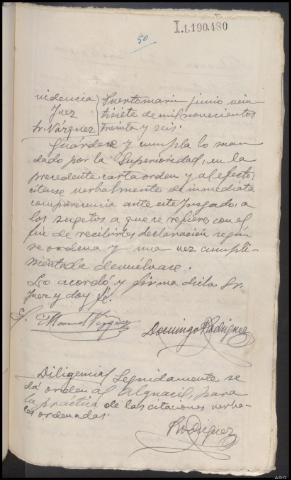 I.L190.480
50
videncia Puertomarin junio vein
Juez tisiete de mil novecientos
Sr. Vázquez treinta y seis.
Guárdese y cumpla lo man
dado por la Superioridad, en la
precedente carta orden y al efecto
citese verbalmente de inmediata
comparencia ante este Juzgado a
los sugetos a que se refiere con el
fin de recibirles declaración según
se ordena y una vez cumpli-
mentada devuelvase.
Lo acordó y firma dicho Sr.
Juez y doy fé.
Manuel Vázquez
Domingo Rodriguez
Diligencia) Seguidamente se
dá orden al Alguacil para
la práctica de las citaciones verba-
les ordenadas.
Rodriguez